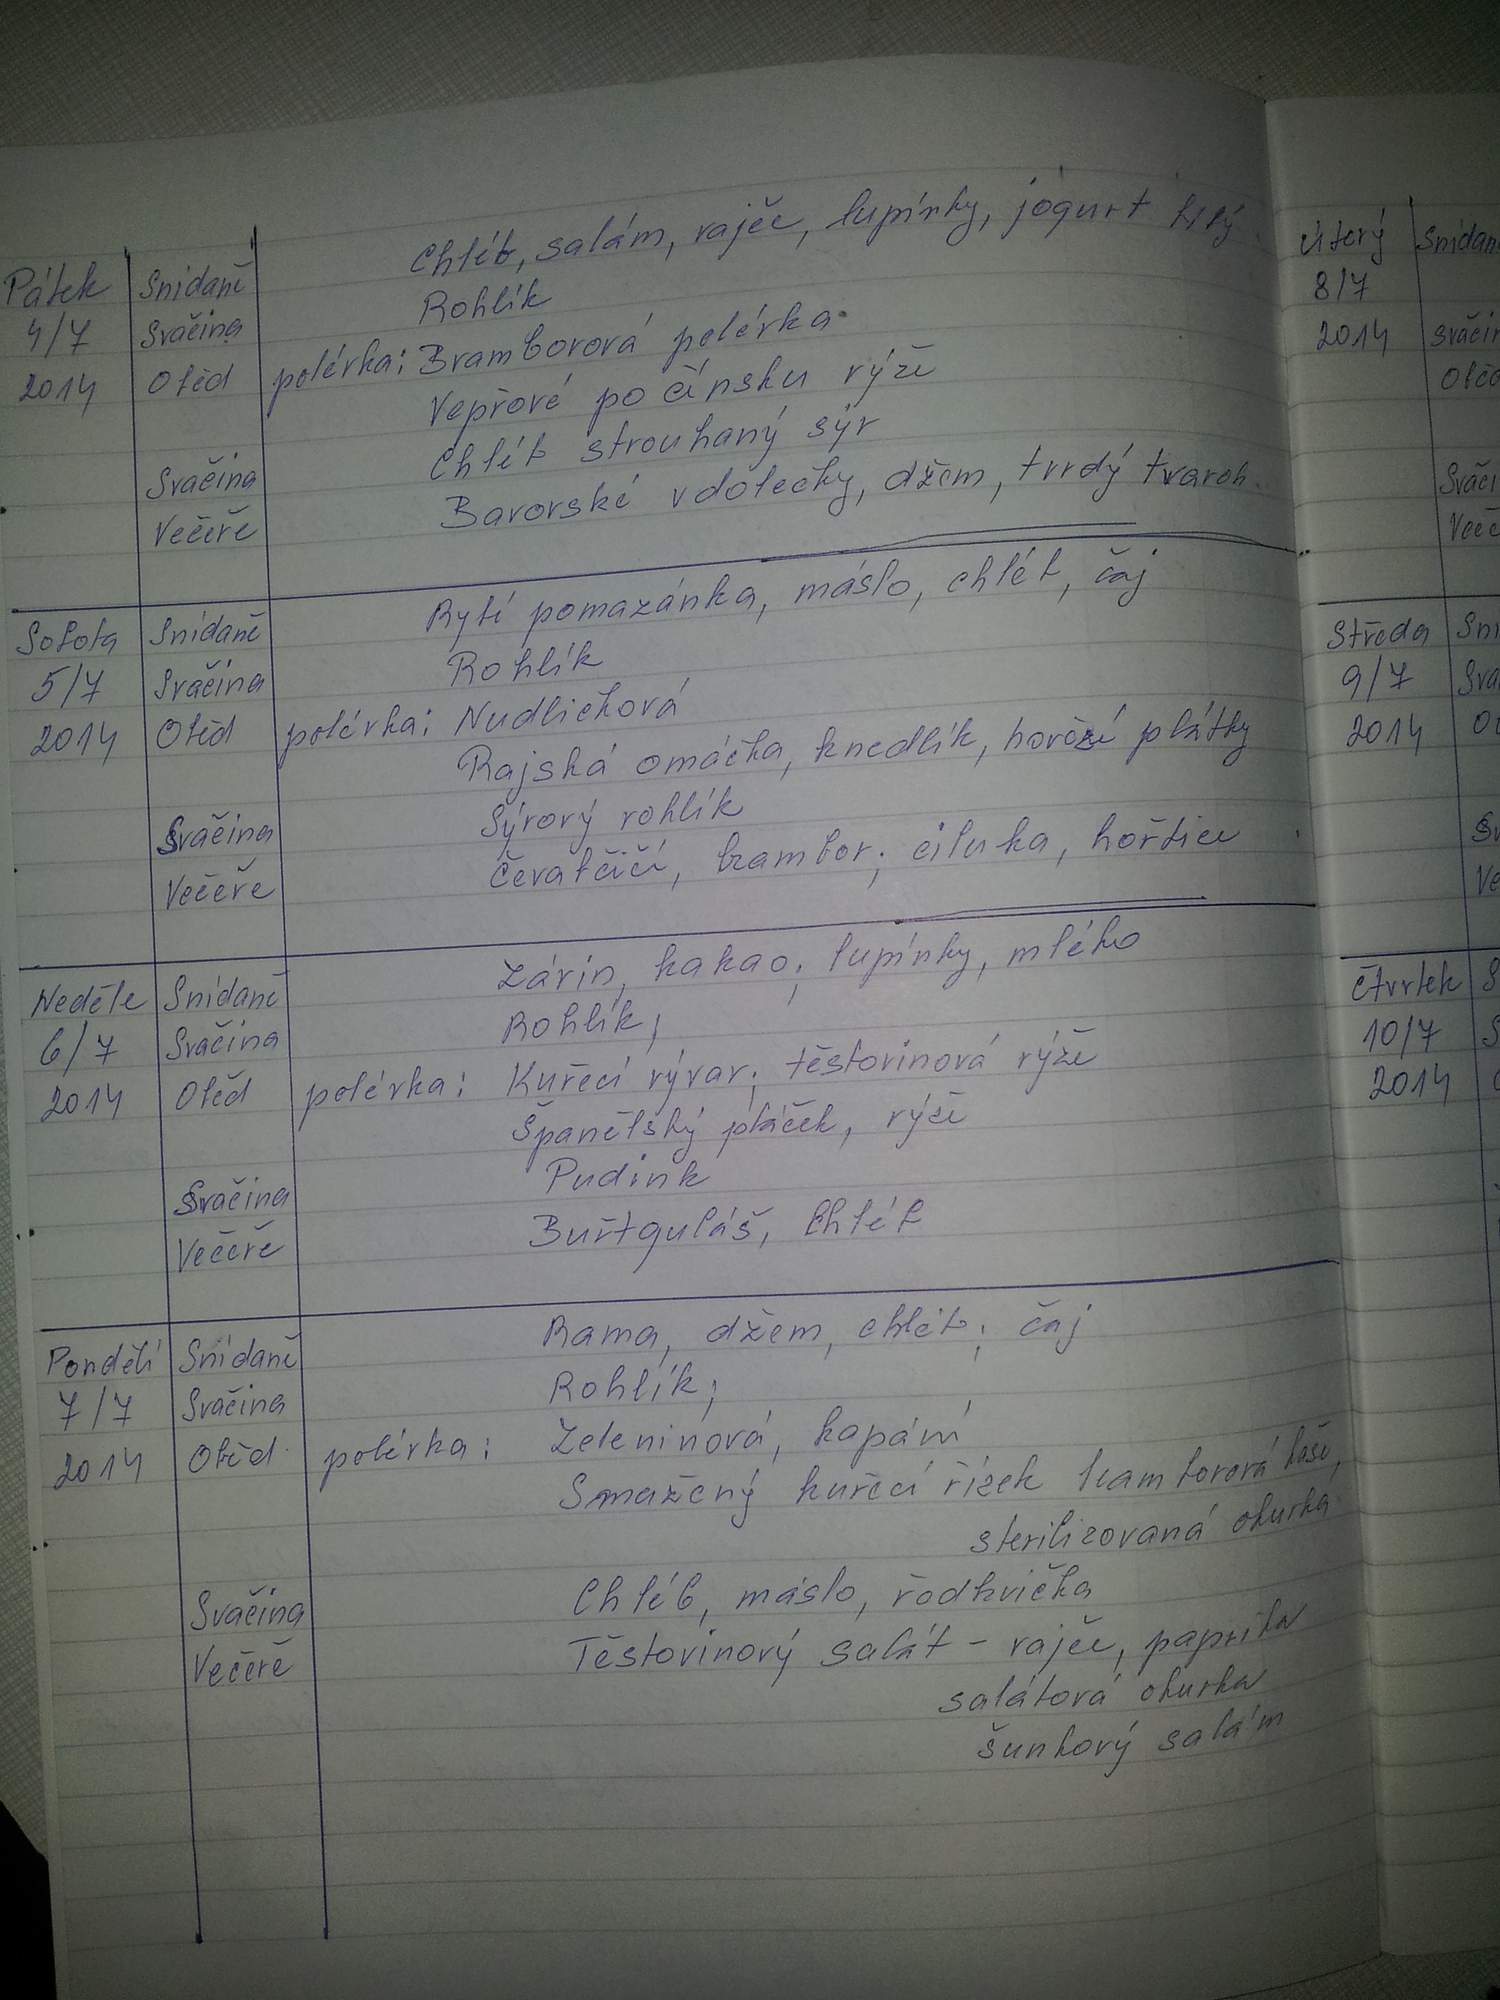 Pátek Snídaně Chléb, salám, rajče, lupínky, jogurt bílý
4/7 Svačina Rohlík
2014 Oběd polévka: Bramborová polévka
Vepřové po čínsku rýže
Svačina Chléb strouhaný sýr
Večeře Bavorské vdolečky, džem, tvrdý tvaroh.
Sobota Snídaně Rybí pomazánka, máslo, chléb, čaj
5/7 Svačina Rohlík
2014 Oběd polévka: Nudličková
Rajská omáčka, knedlík, hovězí plátky
Svačina Sýrový rohlík
Večeře Čevabčičí, brambor, cibulka, hořčice
Neděle Snídaně Závin, kakao, lupínky, mléko
6/7 Svačina Rohlík,
2014 Oběd polévka: Kuřecí vývar, těstovinová rýže
Španělský ptáček, rýže
Svačina Pudink
Večeře Buřtguláš, Chléb
Pondělí Snídaně Rama, džem, chléb, čaj
7/7 Svačina Rohlík,
2014 Oběd polévka: Zeleninová, kapání
Smažený kuřecí řízek bramborová kaše,
sterilizovaná okurka
Svačina Chléb, máslo, ředkvička
Večeře Těstovinový salát - rajče, paprika
salátová okurka
šunkový salám
Úterý Snídan
8/7
2014 Svačin
Oběd
Svači
Več
Středa Sni
9/7 Sva
2014 Ob
Sv
Ve
Čtvrtek S
10/7 S
2014 O